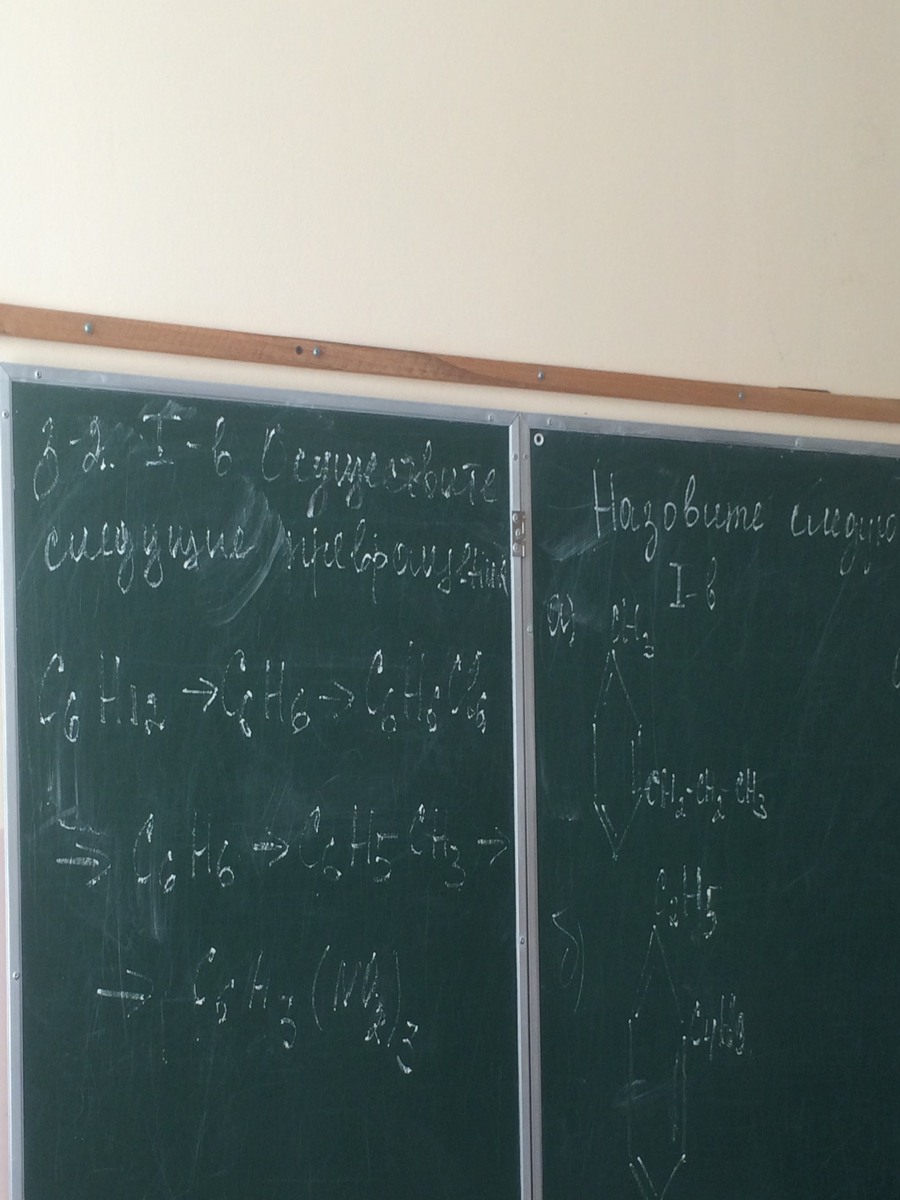 З-2. I-в Осуществите
следущие превращения
C₆H₁₂ → C₆H₆ → C₆H₆Cl₆
→ C₆H₆ → C₆H₅CH₃ →
→ C₆H₃(NO₂)₃
Назовите следую
I-в
а) CH₃
CH₂-CH₂-CH₃
C₂H₅
б)
C₄H₉